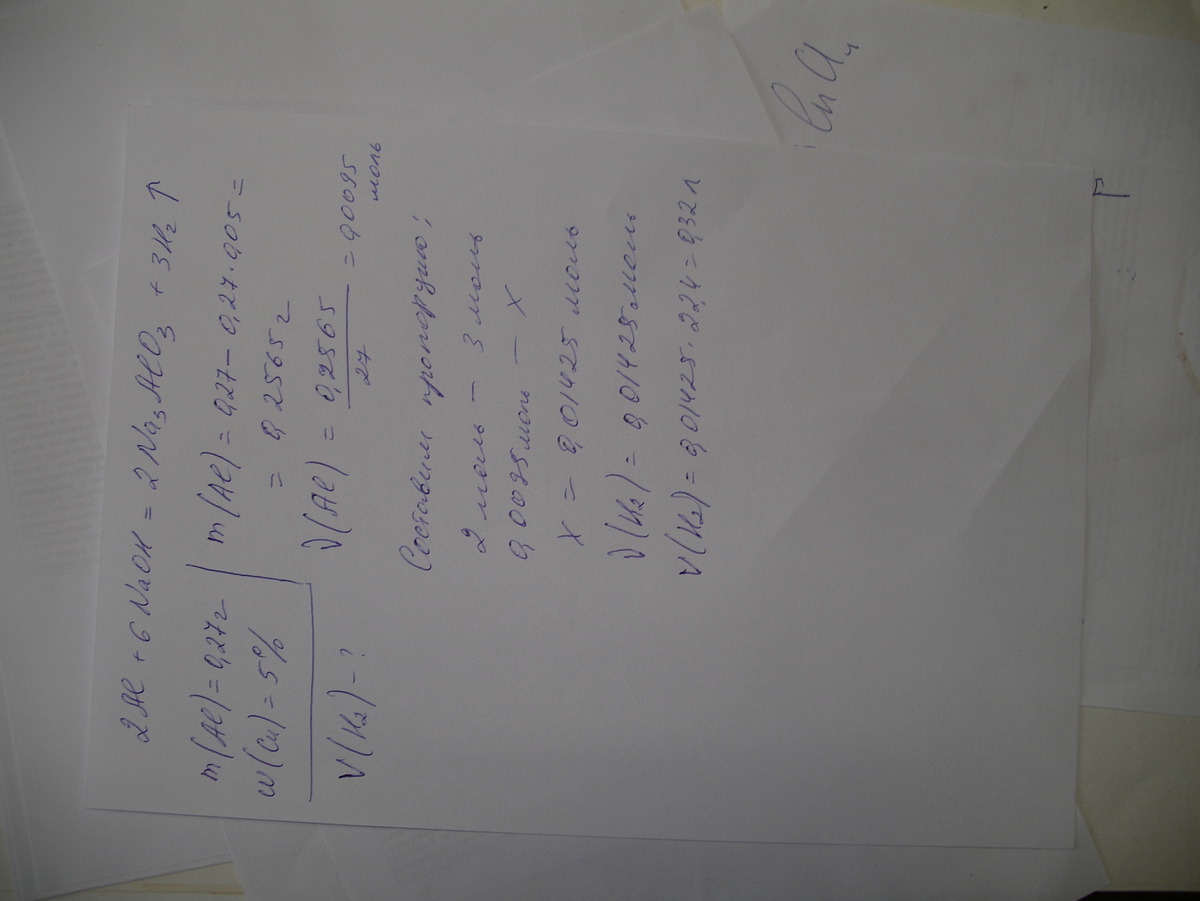 2Al + 6NaOH = 2Na₃AlO₃ + 3H₂ ↑
m(Al) = 0,27г
w(Cu) = 5%
V(H₂) - ?
m(Al) = 0,27 - 0,27 · 0,05 =
= 0,2565г
ν(Al) = 0,2565 / 27 = 0,0095 моль
Составим пропорцию:
2 моль - 3 моль
0,0095 моль - x
x = 0,01425 моль
ν(H₂) = 0,01425 моль
V(H₂) = 0,01425 · 22,4 = 0,32 л